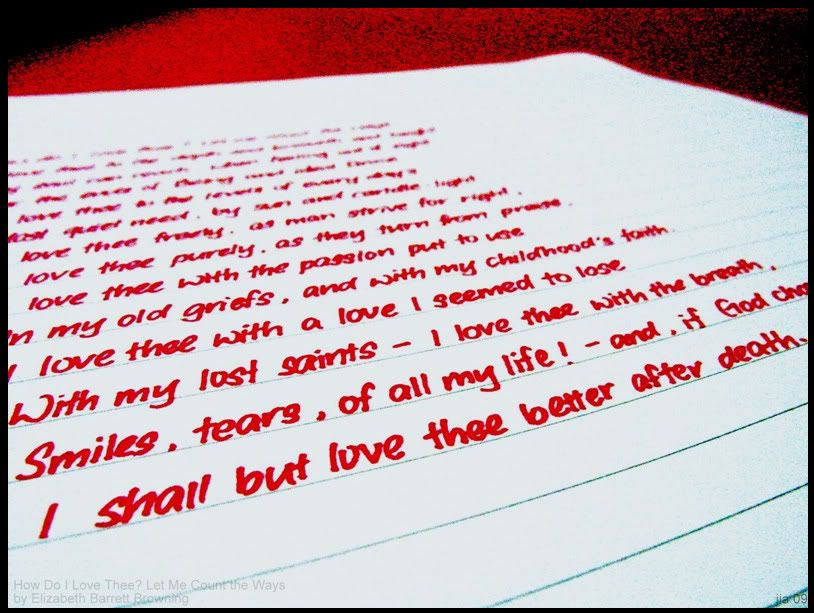 love thee to the level of every day's
quiet need, by sun and candle light
love thee freely, as man strive for right.
love thee purely, as they turn from praise.
love thee with the passion put to use
In my old griefs, and with my childhood's faith.
I love thee with a love I seemed to lose
With my lost saints - I love thee with the breath,
Smiles, tears, of all my life! - and, if God
I shall but love thee better after death.
How Do I Love Thee? Let Me Count the Ways
by Elizabeth Barrett Browning
jia 09